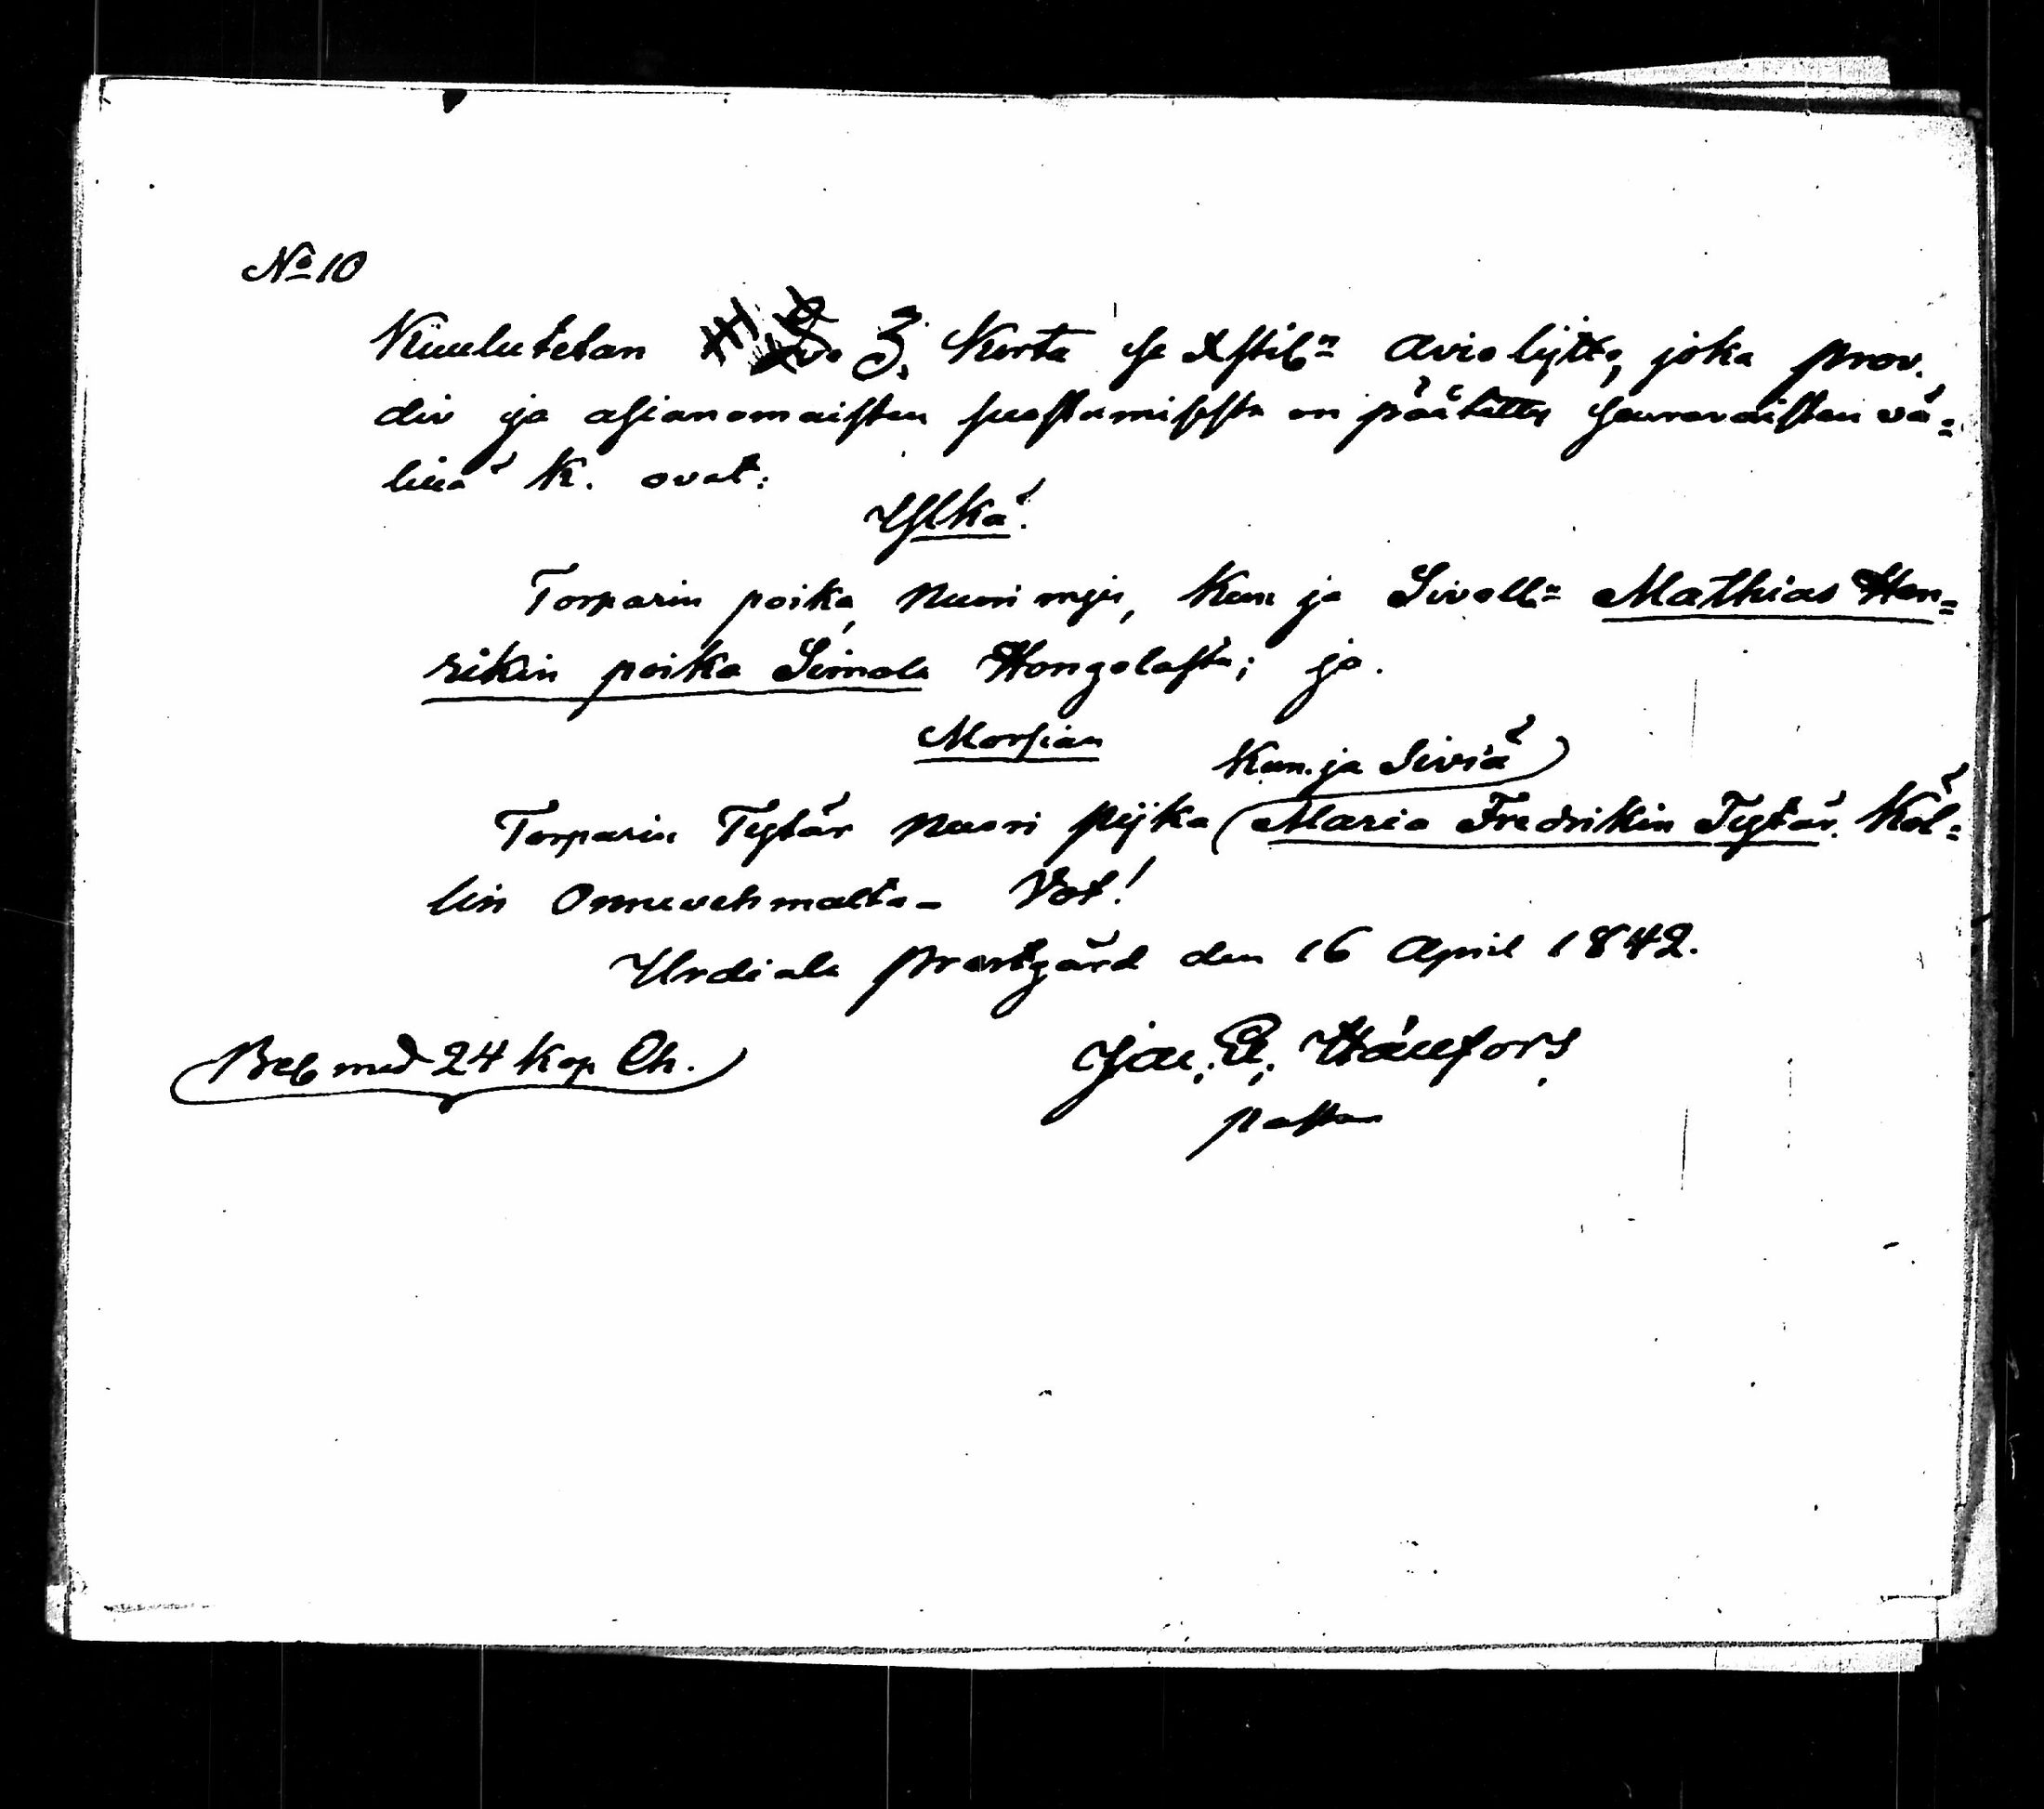 No 10
Kuulutetan 3. Kerta se Xstil:n Avioliitto, joka prov.
div ja asianomaisten suostumisesta on päätetty seuravaisten vä=
lillä K. ovat:
Ylkä:
Torparin poika, Nuori mjes, Kun ja Sivell:n Mathias Hen=
rikin poika Simola Hongolasta; ja.
Morsian
Kun. ja Siviä
Torparin Tytär Nuori pijka (Maria Fredrikin Tytär Käl=
lin Onnevehmalta - Vot!
Urdiala prestgård den 16 April 1842.
Bel. med 24 Kop Ch.
Jac. E. Hällfors
pastor